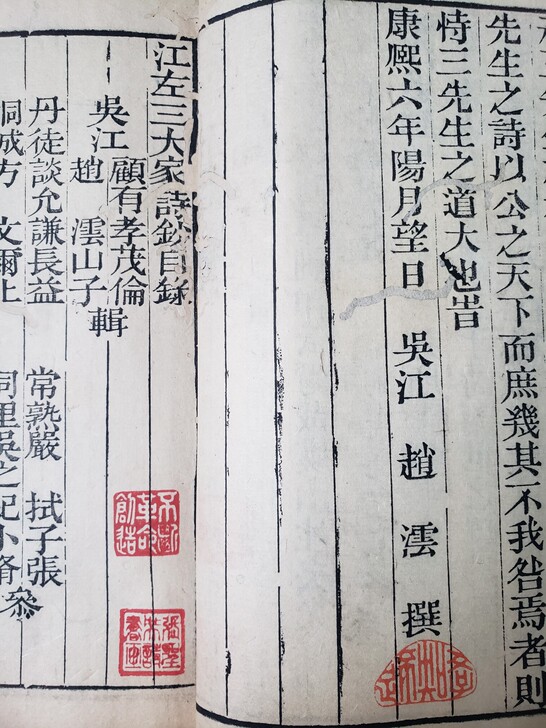 先生之詩以公之天下而庶幾其不我咎焉者則
恃三先生之道大也旹
康熙六年陽月望日 吳江 趙澐 撰
江左三大家詩鈔目錄
吳江 顧有孝茂倫
趙澐山子 輯
丹徒談允謙長益 常熟嚴 拭子張
桐城方 文爾止 同里吳之紀小脩 叅
不斷革命創造